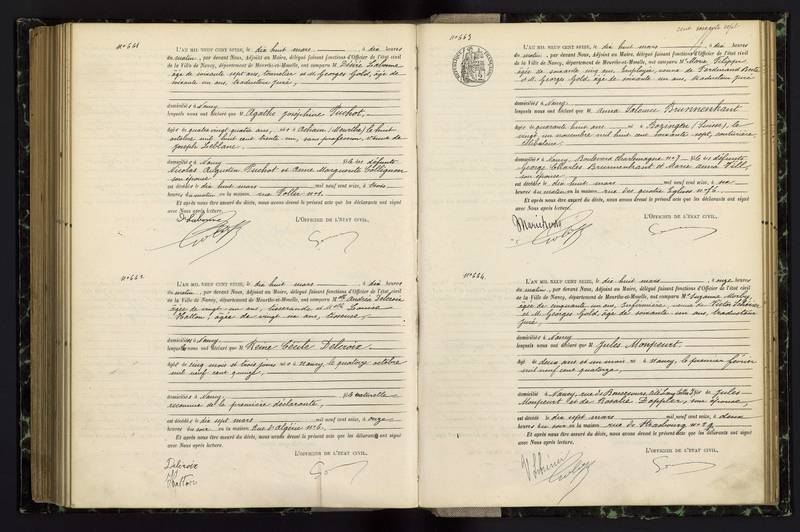 N° 661
L'AN MIL NEUF CENT SEIZE, le dix huit mars, à dix heures
du matin, par devant Nous, Adjoint au Maire, délégué faisant fonctions d'Officier de l'état civil
de la Ville de Nancy, département de Meurthe-et-Moselle, ont comparu M. Désiré
âgé de soixante sept ans, tonnelier et M. Georges Gold, âgé de
soixante un ans, traducteur juré,
domiciliés à Nancy
lesquels nous ont déclaré que M Agathe Joséphine Puchot,
âgée de quatre vingt quatre ans, née à (Meurthe) le huit
octobre mil huit cent trente un, sans profession, veuve de
Joseph Leblanc.
domiciliée à Nancy fille des défunts
Nicolas Augustin Puchot et Anne Marguerite Collignon
son épouse
est décédée le dix huit mars mil neuf cent seize, à trois
heures du matin en la maison rue n° 1.
Et après nous être assuré du décès, nous avons dressé le présent acte que les déclarants ont signé
avec Nous après lecture.
L'OFFICIER DE L'ÉTAT CIVIL,
N° 662
L'AN MIL NEUF CENT SEIZE, le dix huit mars, à dix heures
du matin, par devant Nous, Adjoint au Maire, délégué faisant fonctions d'Officier de l'état civil
de la Ville de Nancy, département de Meurthe-et-Moselle, ont comparu M Andrée Delcroix
âgée de vingt un ans, tisserande et Louise
Hatton, âgée de vingt six ans, tisseuse,
domiciliées à Nancy
lesquelles nous ont déclaré que M Reine Cécile Delcroix
âgée de cinq mois et trois jours née à Nancy, le quatorze octobre
mil neuf cent quinze,
domiciliée à Nancy fille naturelle
reconnue de la première déclarante,
est décédée le dix sept mars mil neuf cent seize, à onze
heures du soir en la maison Rue d'Algérie n° 6.
Et après nous être assuré du décès, nous avons dressé le présent acte que les déclarants ont signé
avec Nous après lecture.
L'OFFICIER DE L'ÉTAT CIVIL,
Delcroix
Hatton
N° 663
L'AN MIL NEUF CENT SEIZE, le dix huit mars, à dix heures
du matin, par devant Nous, Adjoint au Maire, délégué faisant fonctions d'Officier de l'état civil
de la Ville de Nancy, département de Meurthe-et-Moselle, ont comparu M
âgée de soixante cinq ans, employée, veuve de Ferdinand
et M. Georges Gold, âgé de soixante un ans, traducteur juré
domiciliés à Nancy
lesquels nous ont déclaré que M Anna Salomé Brunnenkant
âgée de quarante huit ans née à Bozingen (Suisse), le
vingt un novembre mil huit cent soixante sept, couturière
célibataire
domiciliée à Nancy, Boulevard Charlemagne n° 7 fille des défunts
George Charles Brunnenkant et Marie Anna Vill,
son épouse
est décédée le dix huit mars mil neuf cent seize, à six
heures du matin en la maison rue des quatre Eglises
Et après nous être assuré du décès, nous avons dressé le présent acte que les déclarants ont signé
avec Nous après lecture.
L'OFFICIER DE L'ÉTAT CIVIL,
N° 664.
L'AN MIL NEUF CENT SEIZE, le dix huit mars, à onze heures
du matin, par devant Nous, Adjoint au Maire, délégué faisant fonctions d'Officier de l'état civil
de la Ville de Nancy, département de Meurthe-et-Moselle, ont comparu M Suzanne
âgée de cinquante un ans, infirmière, veuve de Victor
et M. Georges Gold, âgé de soixante un ans, traducteur
juré,
domiciliés à Nancy
lesquels nous ont déclaré que M Jules Monpeurt
âgé de deux ans et un mois né à Nancy, le premier février
mil neuf cent quatorze,
domicilié à Nancy, fils de Jules
Monpeurt et de Rosalie Doppler, son épouse,
est décédé le dix sept mars mil neuf cent seize, à deux
heures du soir en la maison rue de Strasbourg
Et après nous être assuré du décès, nous avons dressé le présent acte que les déclarants ont signé
avec Nous après lecture.
L'OFFICIER DE L'ÉTAT CIVIL,